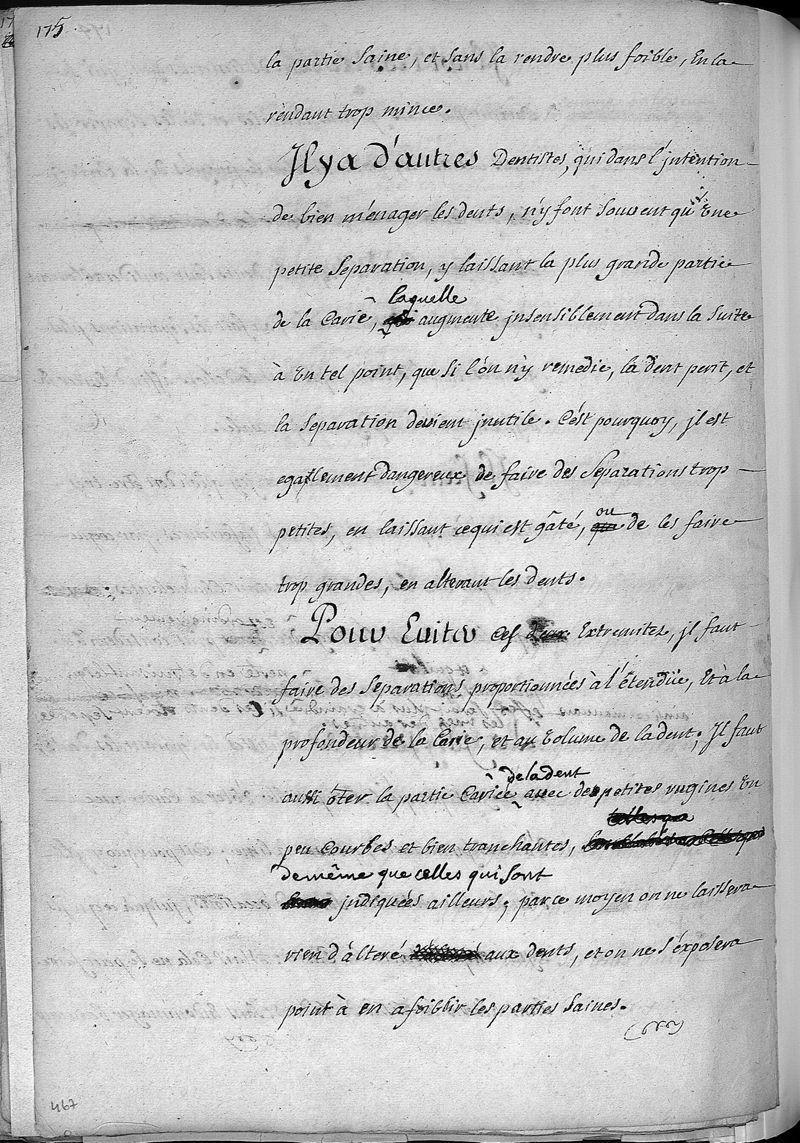 175.
la partie saine, et sans la rendre plus foible, En la
rendant trop mince.
Il y a d'autres Dentistes, qui dans l'jntention
de bien ménager les dents, n'y font souvent qu'une
petite Separation, y laissant la plus grande partie
laquelle
de la Carie, qui augmente jnsensiblement dans la Suite
à un tel point, que si l'on n'y remedie, la dent perit, et
la Separation devient jnutile. C'est pourquoy, jl est
egallement dangereux de faire des Separations trop
ou
petites, en laissant ce qui est gâté, que de les faire
trop grandes, en alterant les dents.
Pour Eviter ces deux Extremités, jl faut
faire des Separations proportionnées à l'étendüe, et à la
profondeur de la Carie, et au volume de la dent; Il faut
de la dent
aussi ôter la partie Cariée avec de petites rugines un
celles qui
peu Courbes et bien tranchantes,
de même que celles qui sont
jndiquées ailleurs; par ce moyen on ne laissera
rien d'àlteré aux dents, et on ne s'éxposera
point à en afoiblir les parties saines.
467